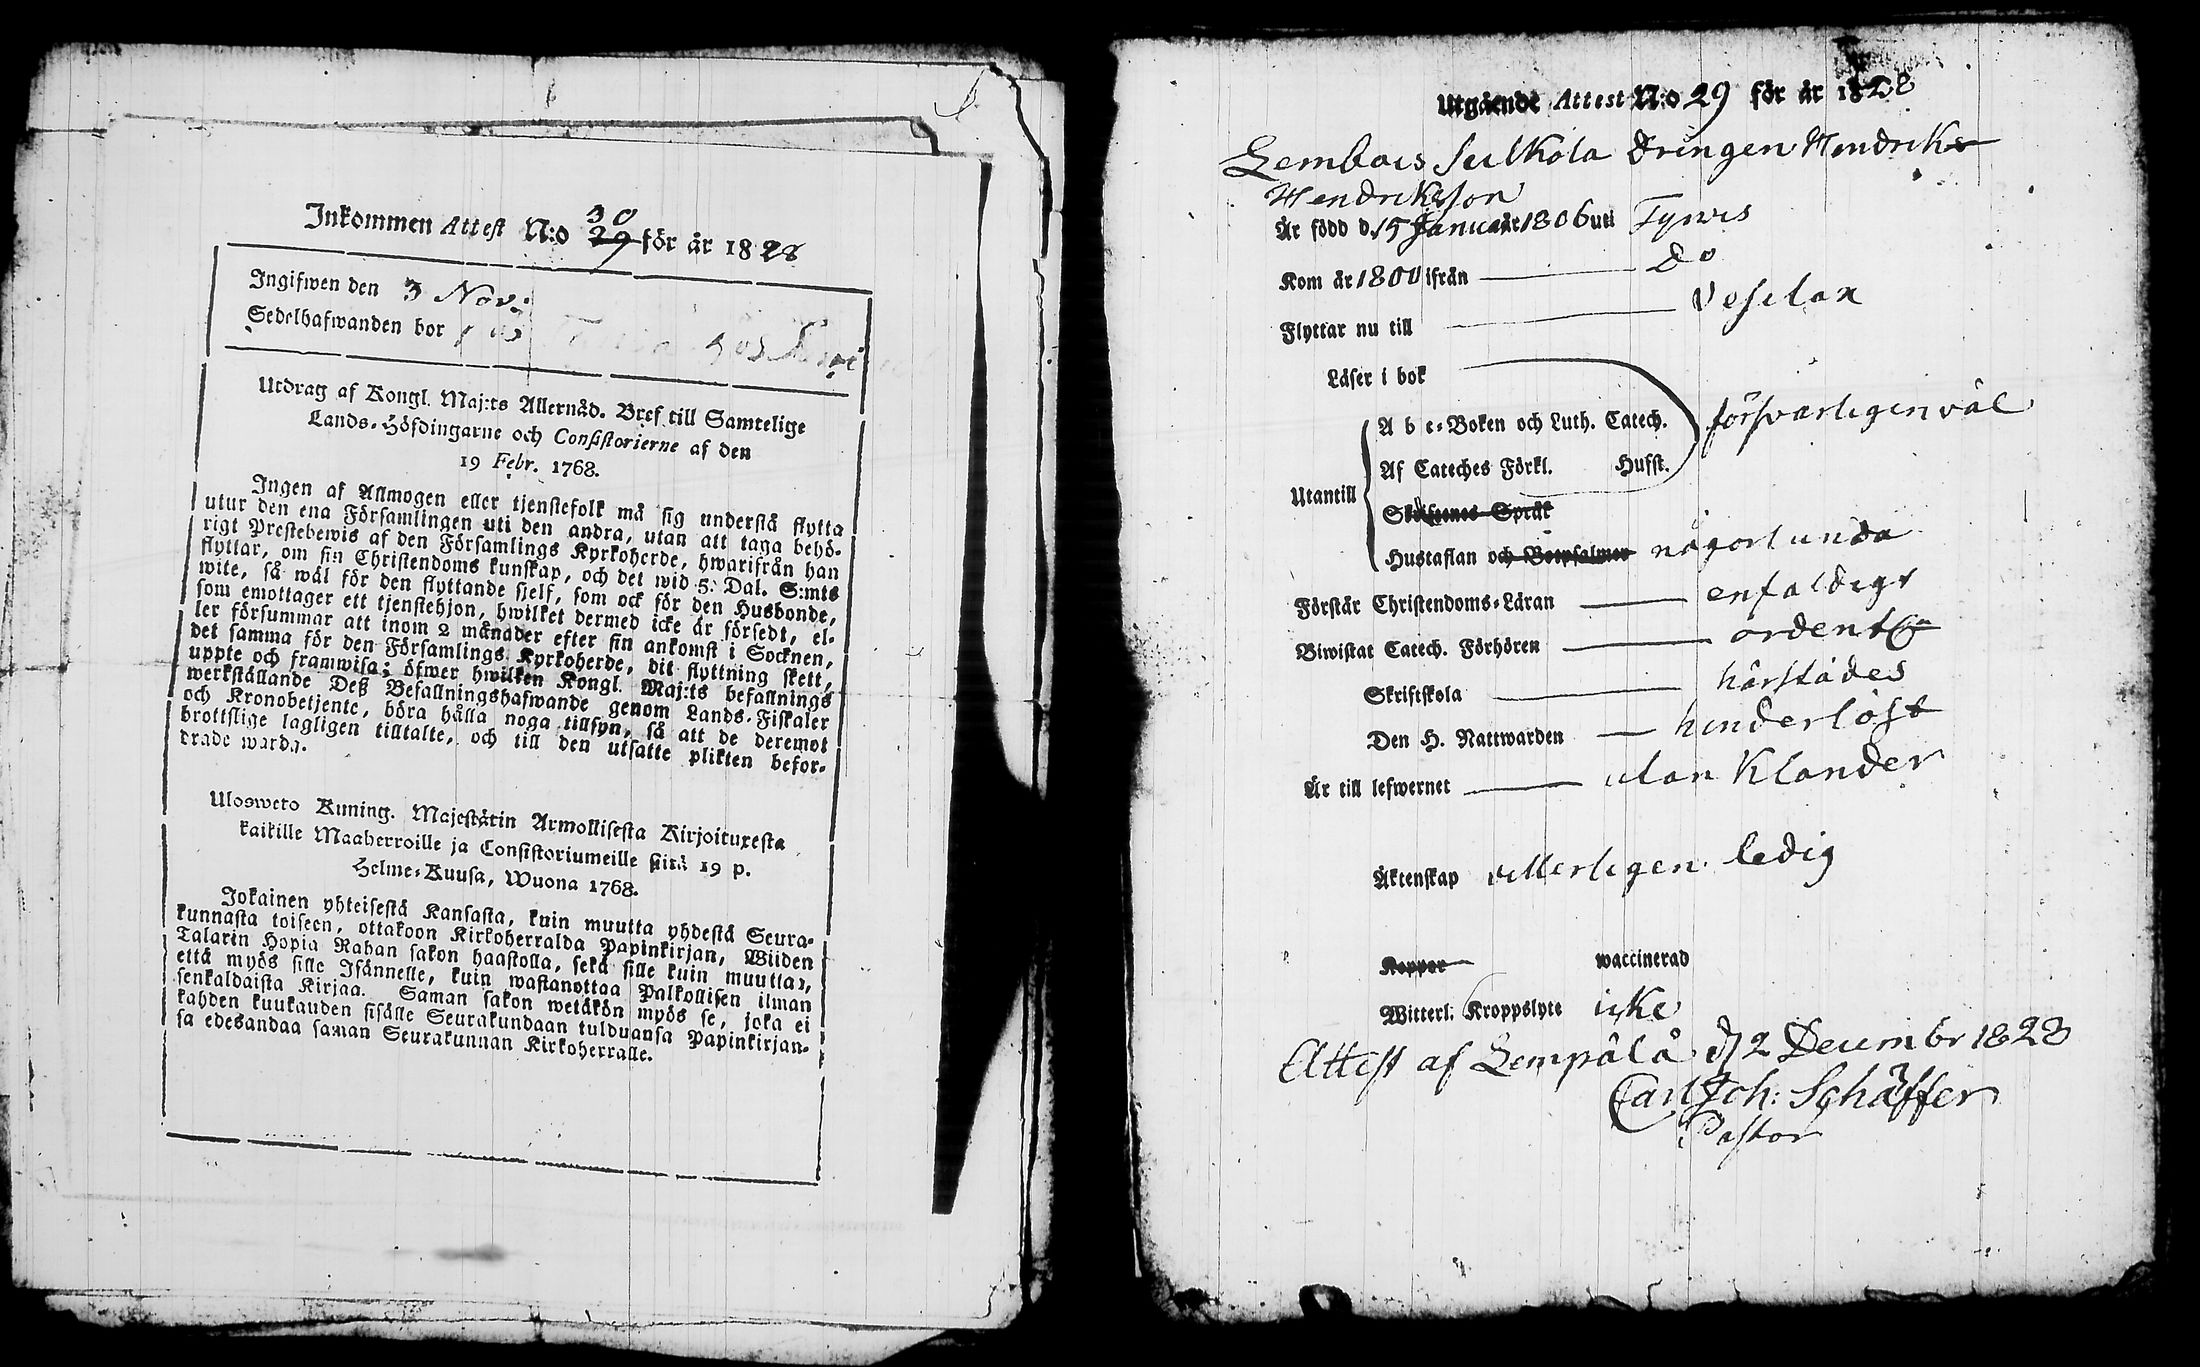 Inkommen Attest N:o 30
29 för år 1828
Ingifwen den 3 Nov:
Sedelhafwanden bor
Utdrag af Kongl. Maj:ts Allernåd. Bref till Samtelige
Lands-Höfdingarne och Consistorierne af den
19 Febr. 1768.
Ingen af Allmogen eller tjenstefolk må sig understå flytta
utur den ena Församlingen uti den andra, utan att taga behö-
rigt Prestebewis af den Församlings Kyrkoherde, hwarifrån han
flyttar, om sin Christendoms kunskap, och det wid 5: Dal. S:mts
wite, så wäl för den flyttande sjelf, som ock för den Husbonde,
som emottager ett tjenstehjon, hwilket dermed icke är försedt, el-
ler försummar att inom 2 månader efter sin ankomst i Socknen,
det samma för den Församlings Kyrkoherde, dit flyttning skett,
uppte och framwisa; öfwer hwilken Kongl. Maj:ts befallnings
werkställande Deß Befallningshafwande genom Lands-Fiskaler
och Kronobetjente, böra hålla noga tillsyn, så att de deremot
brottslige lagligen tilltalte, och till den utsatte plikten befor-
drade warda.
Ulosweto Kuning. Majestätin Armollisesta Kirjoituxesta
kaikille Maaherroille ja Consistoriumeille siitä 19 p.
Helme-Kuusa, Wuona 1768.
Jokainen yhteisestä Kansasta, kuin muutta yhdestä Seura-
kunnasta toiseen, ottakoon Kirkoherralda Papinkirjan, Wiiden
Talarin Hopia Rahan sakon haastolla, sekä sille kuin muuttaa,
että myös sille Isännelle, kuin wastanottaa Palkollisen ilman
senkaldaista Kirjaa. Saman sakon wetäkön myös se, joka ei
kahden kuukauden sisälle Seurakundaan tulduansa Papinkirjan-
sa edesandaa saman Seurakunnan Kirkoherralle.
Utgående Attest N:o 29 för år 1828
Lembois Sulkola Drengen Hendrik
Hendriksson
Är född d. 15 Januar år 1806 uti Tyrvis
Kom år 1800 ifrån Do
Flyttar nu till Vesilax
Läser i bok
A b c-Boken och Luth. Catech. försvarligen väl
Af Cateches Förkl. Husst.
Utantill
Skriftenes Språk
Hustaflan och Botpsalmer någorlunda
Förstår Christendoms-Läran enfaldigt
Biwistat Catech. Förhören ordentl:n
Skriftskola härstädes
Den H. Nattwarden hinderlöst
Är till lefwernet utan Klander
Äktenskap vitterligen ledig
Koppor waccinerad
Witterl. Kroppslyte icke
Attest af Lempälä d 2 Decembr 1828
Carl Joh: Schäffer
Pastor